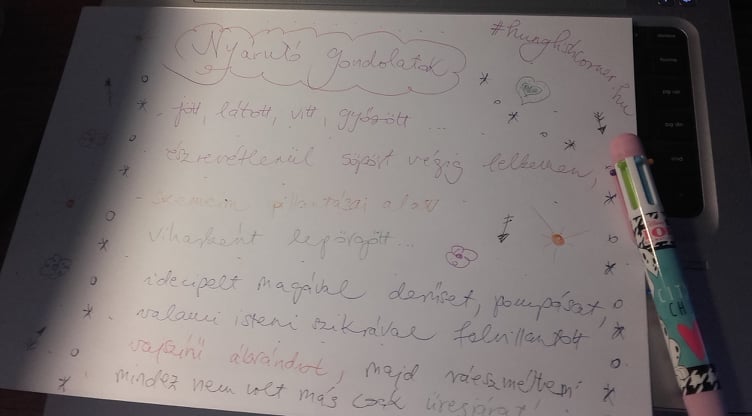 Nyárutó gondolatok
#hunglishcorner.hu
jött, látott, vitt, győzött...
észrevétlenül söpört végig lelkemen,
szemeim pillantásai alatt
viharként lepörgött...
idecipelt magával derűset, pompásat,
valami isteni szikrával felvillantott
vajszínű ábrándot, majd ráeszméltem:
mindez nem volt más csak üresjárat!